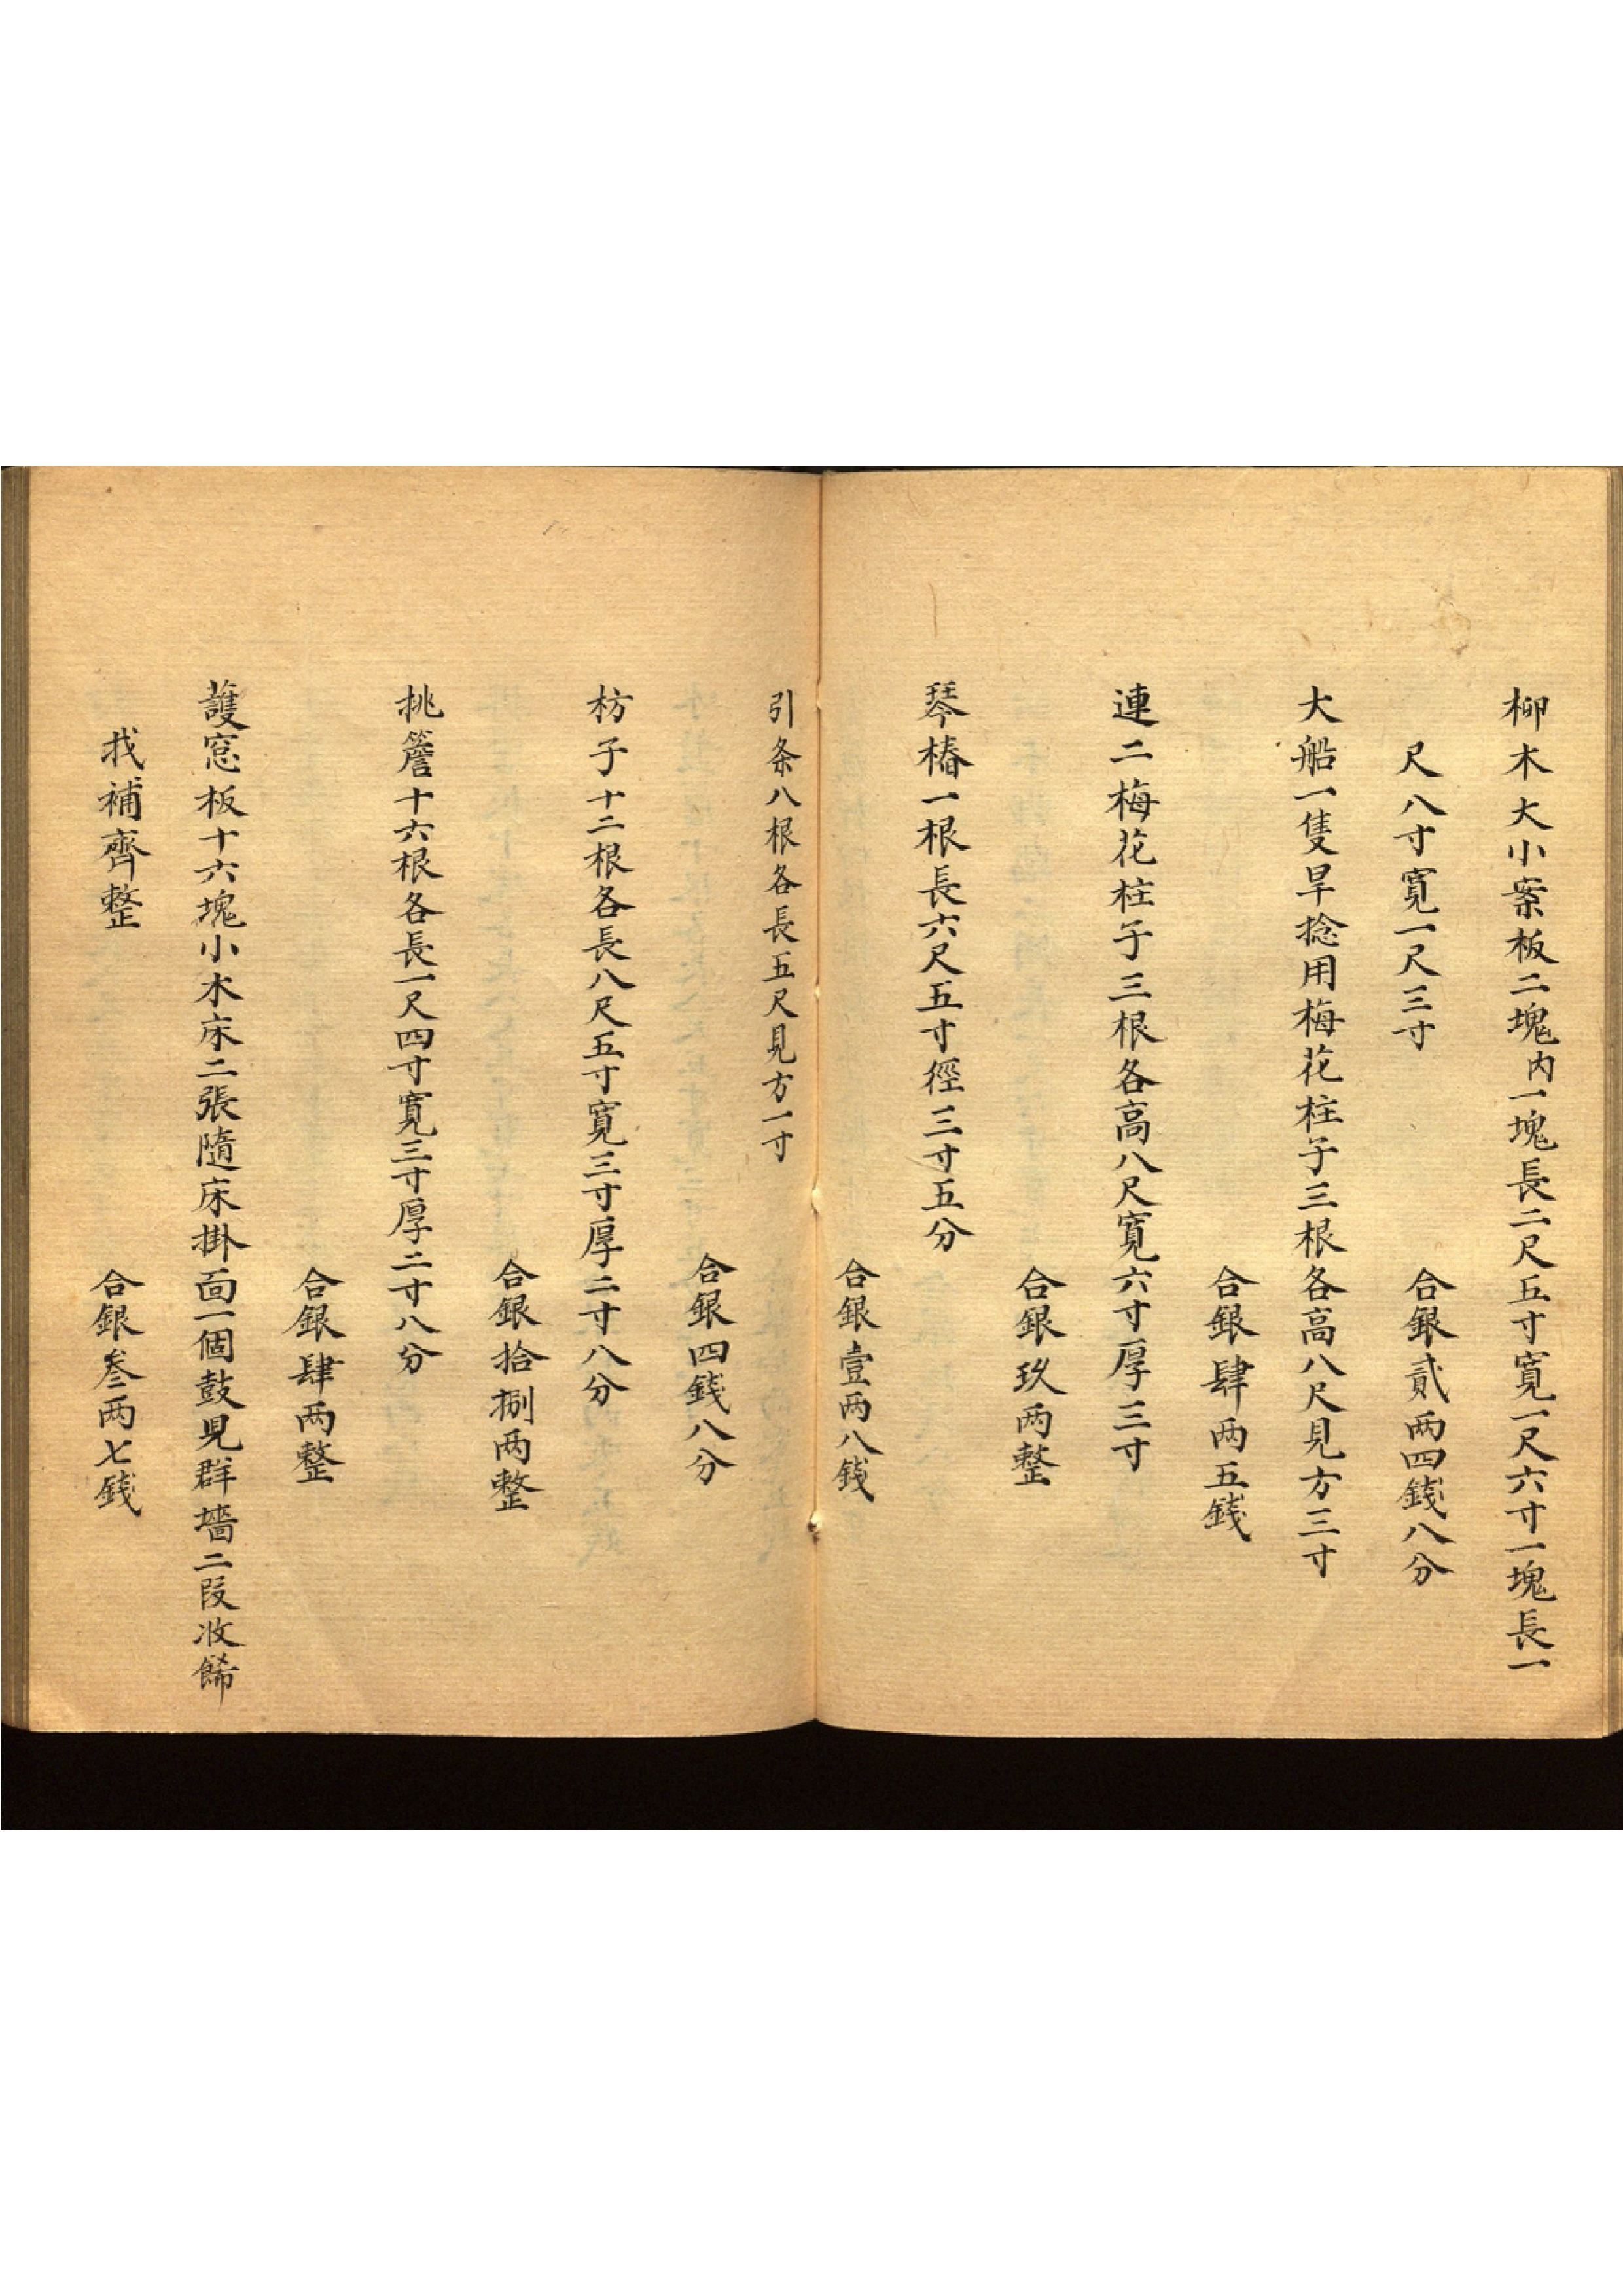 柳木大小案板二塊内一塊長二尺五寸寬一尺六寸一塊長一
尺八寸寬一尺三寸
合銀貳两四錢八分
大船一隻旱捻用梅花柱子三根各高八尺見方三寸
合銀肆两五錢
連二梅花柱子三根各高八尺寬六寸厚三寸
合銀玖两整
琴樁一根長六尺五寸徑三寸五分
合銀壹两八錢
引条八根各長五尺見方一寸
合銀四錢八分
枋子十二根各長八尺五寸寬三寸厚二寸八分
合銀拾捌两整
挑簷十六根各長一尺四寸寬三寸厚二寸八分
合銀肆两整
護窓板十六塊小木床二張隨床掛面一個鼓児群墻二段收餙
找補齊整
合銀叁两七錢